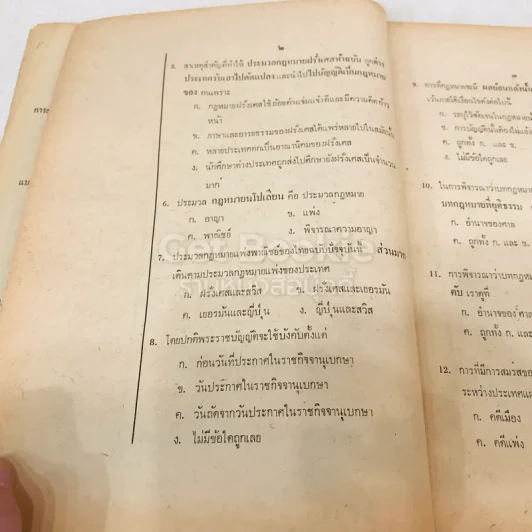 ๒
5. สาเหตุสำคัญที่ทำให้ ประมวลกฎหมายฝรั่งเศสฟ้าฉบับ ถูกต่าง
ประเทศรับเอาไปดัดแปลง และนำไปบัญญัติเป็นกฎหมาย
ของ ตนเพราะ
ก. กฎหมายฝรั่งเศสใช้ถ้อยคำแจ่มแจ้งดีและมีความคิดก้าว
หน้า
ข. ภาษาและอารยธรรมของฝรั่งเศสได้แพร่หลายไปในสมัยนั้น
ค. หลายประเทศตกเป็นอาณานิคมของฝรั่งเศส
ง. นักศึกษาต่างประเทศถูกส่งไปศึกษายังฝรั่งเศสเป็นจำนวน
มาก
6. ประมวล กฎหมายนโปเลียน คือ ประมวลกฎหมาย
ก. อาญา ข. แพ่ง
ค. พาณิชย์ ง. พิจารณาความอาญา
7. ประมวลกฎหมายแพ่งพาณิชย์ของไทยฉบับปัจจุบันนี้ ส่วนมาก
เดินตามประมวลกฎหมายแพ่งของประเทศ
ก. ฝรั่งเศสและสวิส ข. ฝรั่งเศสและเยอรมัน
ค. เยอรมันและญี่ปุ่น ง. ญี่ปุ่นและสวิส
8. โดยปกติพระราชบัญญัติจะใช้บังคับตั้งแต่
ก. ก่อนวันที่ประกาศในราชกิจจานุเบกษา
ข. วันประกาศในราชกิจจานุเบกษา
ค. วันถัดจากวันประกาศในราชกิจจานุเบกษา
ง. ไม่มีข้อใดถูกเลย
9. การที่กฎหมายจะมี ผลย้อนหลังนั้น
ค. ถูกทั้ง ก. และ ข.
ง. ไม่มีข้อใดถูก
10. ในการพิจารณาว่าบทกฎหมาย
บทกฎหมายที่ยุติธรรม
ก. อำนาจของศาล
ค. ถูกทั้ง ก. และ ข.
11. การพิจารณาว่าบทกฎหม
คับ เราดูที่
ก. อำนาจของศาล
ค. ถูกทั้ง ก. และ
12. การที่มีการสมรสขอ
ระหว่างประเทศแ
ก. คดีเมือง
ค. คดีแพ่ง
Get Bookie
ร้านหนังสือมูดี้